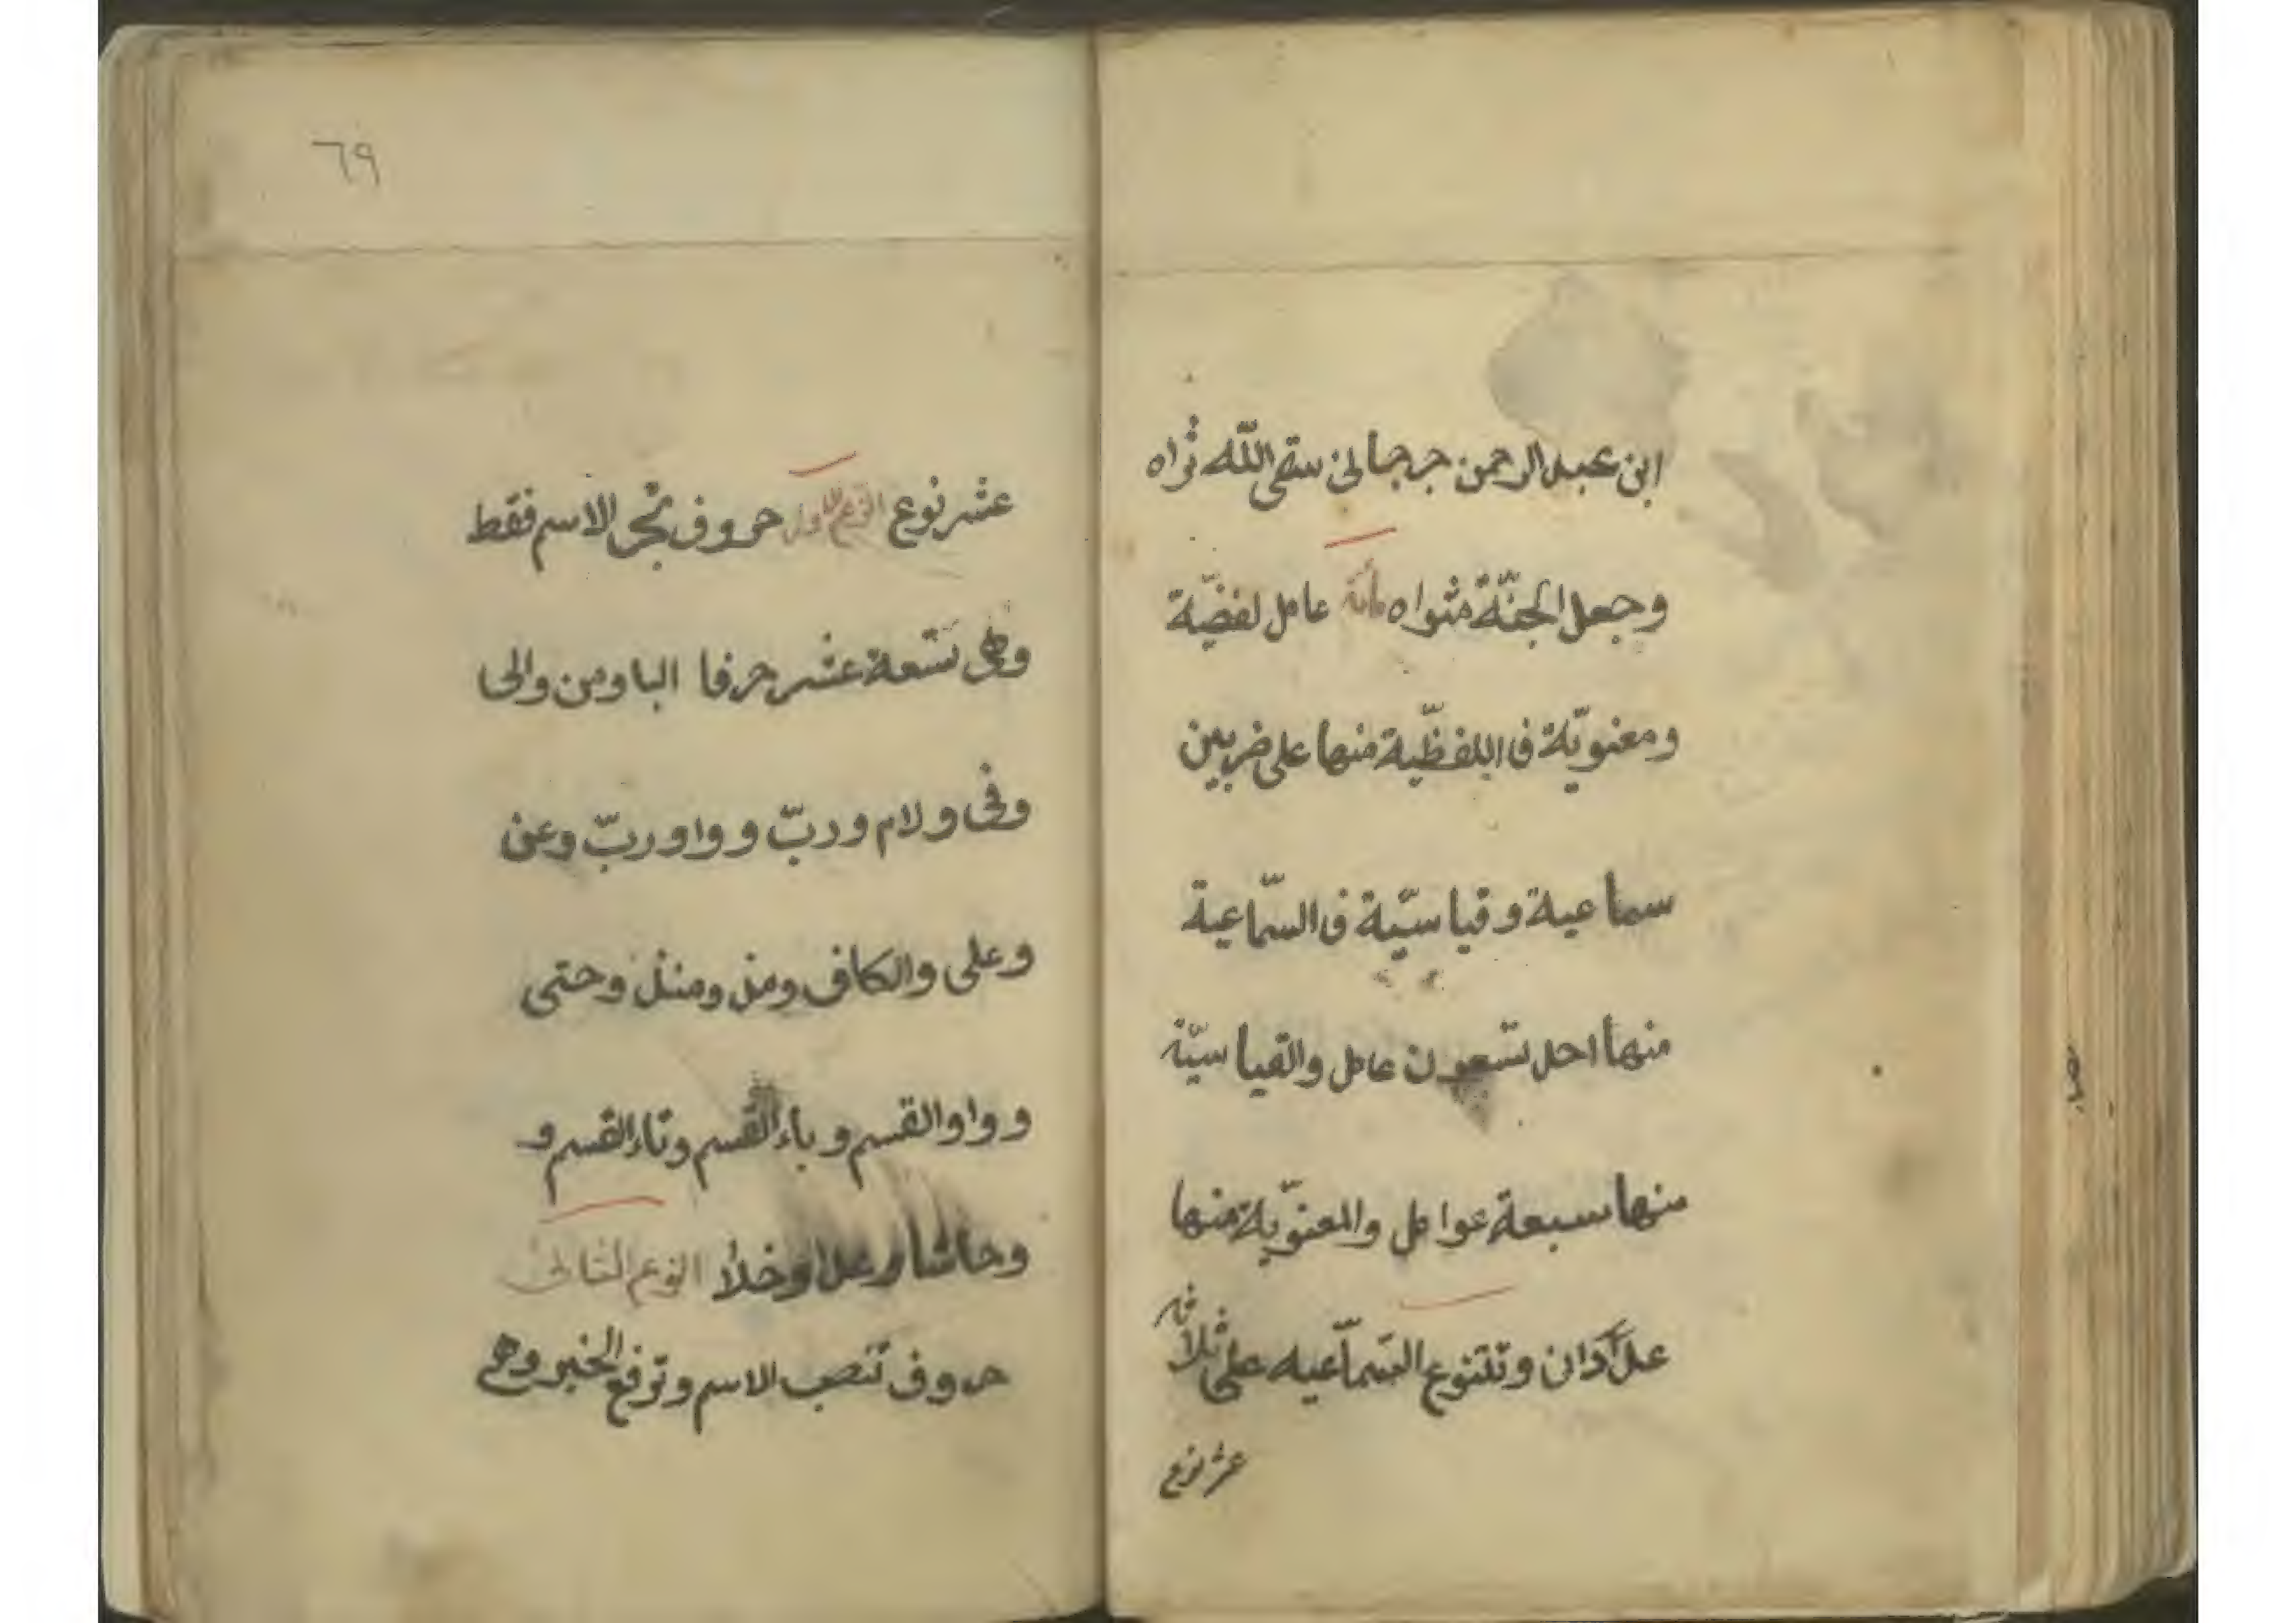 ابن عبد الرحمن جرجانى سقى اللّه ثراه
وجعل الجنّة مثواه مائة عامل لفضيّة
ومعنويّة فى اللفظّية منها على ضربين
سماعية وقياسيّة فى السّماعية
منها احد تسعون عامل والقياسيّة
منها سبعة عوامل والمعنويّة منها
عددان وتتنوع السّماعيه على ثلاثة
عشر نوع
٦٩
عشر نوع النوع الاول حروف تجر الاسم فقط
وهى تسعة عشر حرفا البا ومن والى
وفى ولام وربّ وواو ربّ وعن
وعلى والكاف ومذ ومنذ وحتى
وواو القسم وباء القسم وتاء القسم و
وحاشا وعدا وخلا النوع الثانى
حروف تنصب الاسم وترفع الخبر وهى